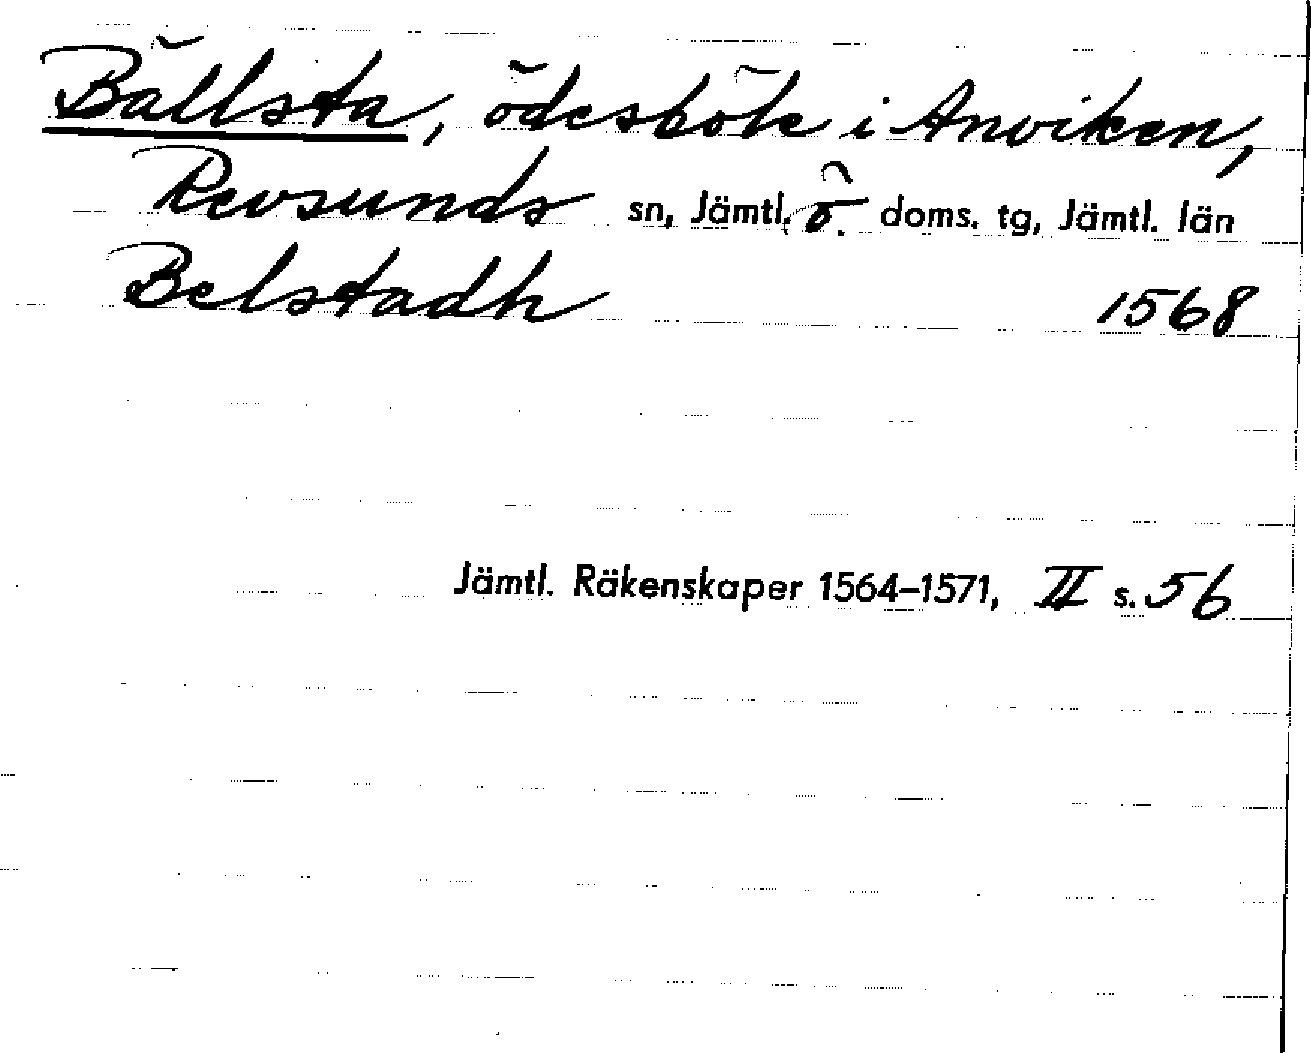 Bällsta, ödesböle i Anviken,
Revsunds sn, Jämtl. ö. doms. tg, Jämtl. län
Belstadh 1568
Jämtl. Räkenskaper 1564–1571, II s. 56